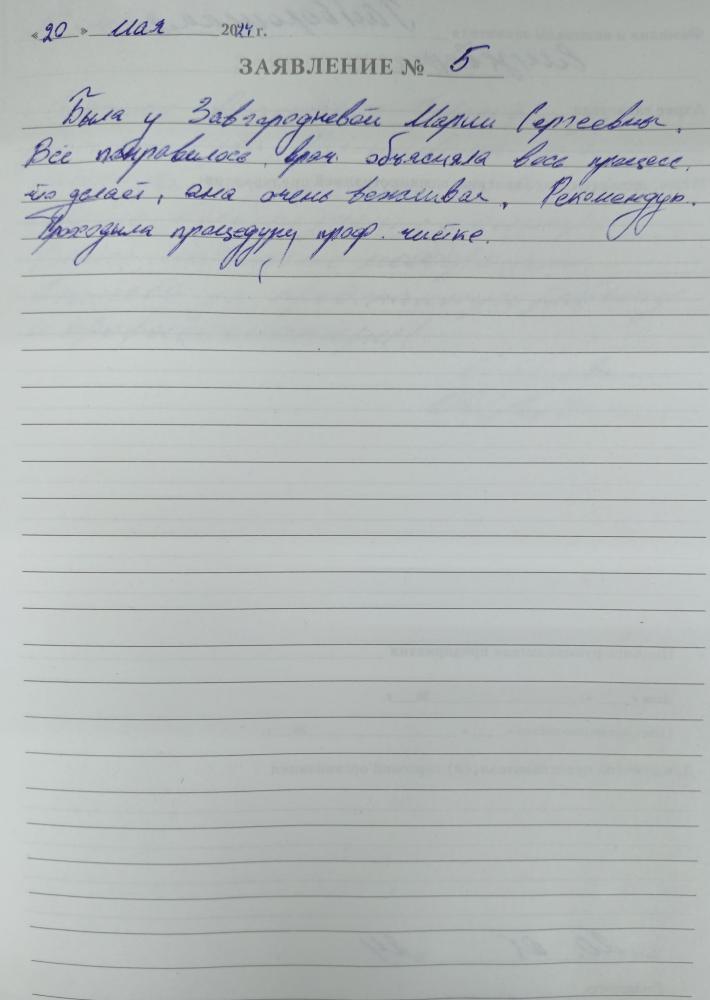 «20» Мая 2024 г.
ЗАЯВЛЕНИЕ № 5
Была у Завгородневой Марии Сергеевны.
Всё понравилось, врач объясняла весь процесс.
что делает, она очень вежливая. Рекомендую.
Проходила процедуру проф. чистке.